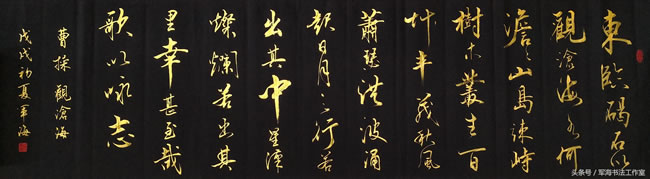 東臨碣石以
觀滄海水何
澹〻山島竦峙
樹木叢生百
艸丰茂秋風
蕭瑟洪波涌
起日月之行若
出其中星漢
燦爛若出其
里幸甚至哉
歌以咏志
曹操觀滄海
戊戌初夏軍海
头条号／军海书法工作室